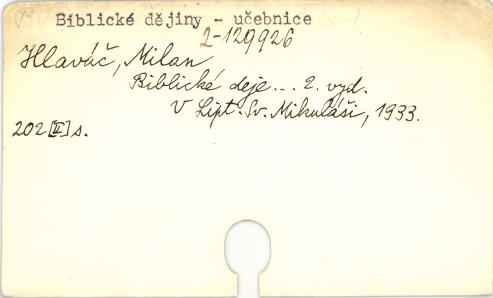 Biblické dějiny - učebnice
2-129926
Hlaváč, Milan
Biblické deje... 2. vyd.
V Lipt. Sv. Mikuláši, 1933.
202 [II] s.